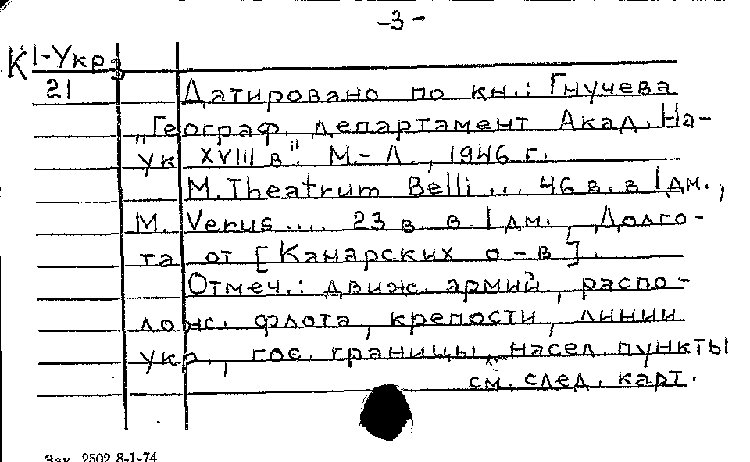 -3-
К 1-Укр
21
Датировано по кн.: Гнучева
„Географ. департамент Акад. На-
ук XVIII в". М.-Л., 1946 г.
М. Theatrum Belli ... 46 в. в 1 дм.,
М. Verus .... 23 в. в 1 дм., Долго-
та от [Канарских о-в].
Отмеч.: движ. армий, распо-
лож. флота, крепости, линии
укр., гос. границы, насел. пункты
см. след. карт.
Зак. 2502 8-1-74